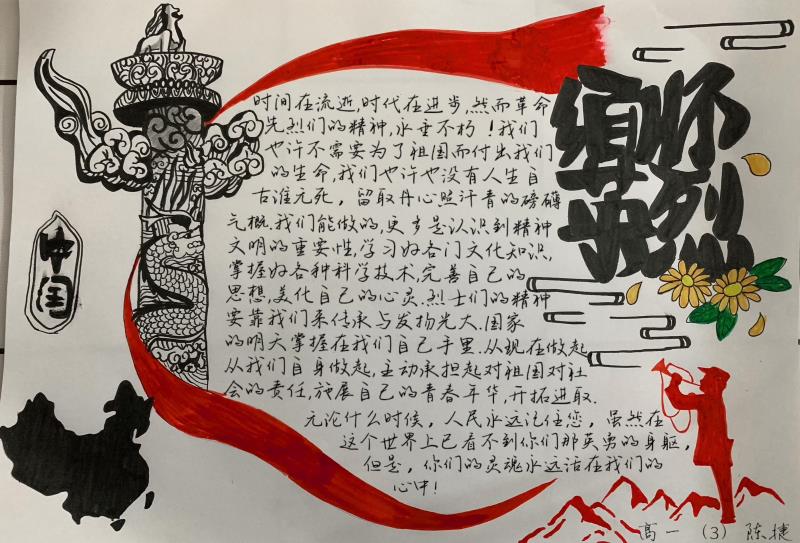 缅怀
英烈
中国
时间在流逝,时代在进步,然而革命
先烈们的精神,永垂不朽!我们
也许不需要为了祖国而付出我们
的生命,我们也许也没有人生自
古谁无死,留取丹心照汗青的磅礴
气概.我们能做的,更多是认识到精神
文明的重要性,学习好各门文化知识,
掌握好各种科学技术,完善自己的
思想,美化自己的心灵.烈士们的精神
要靠我们来传承与发扬光大.国家
的明天掌握在我们自己手里.从现在做起
从我们自身做起,主动承担起对祖国对社
会的责任,施展自己的青春年华,开拓进取.
无论什么时候,人民永远记住您,虽然在
这个世界上已看不到你们那英勇的身躯,
但是,你们的灵魂永远活在我们的
心中!
高一(3)陈捷